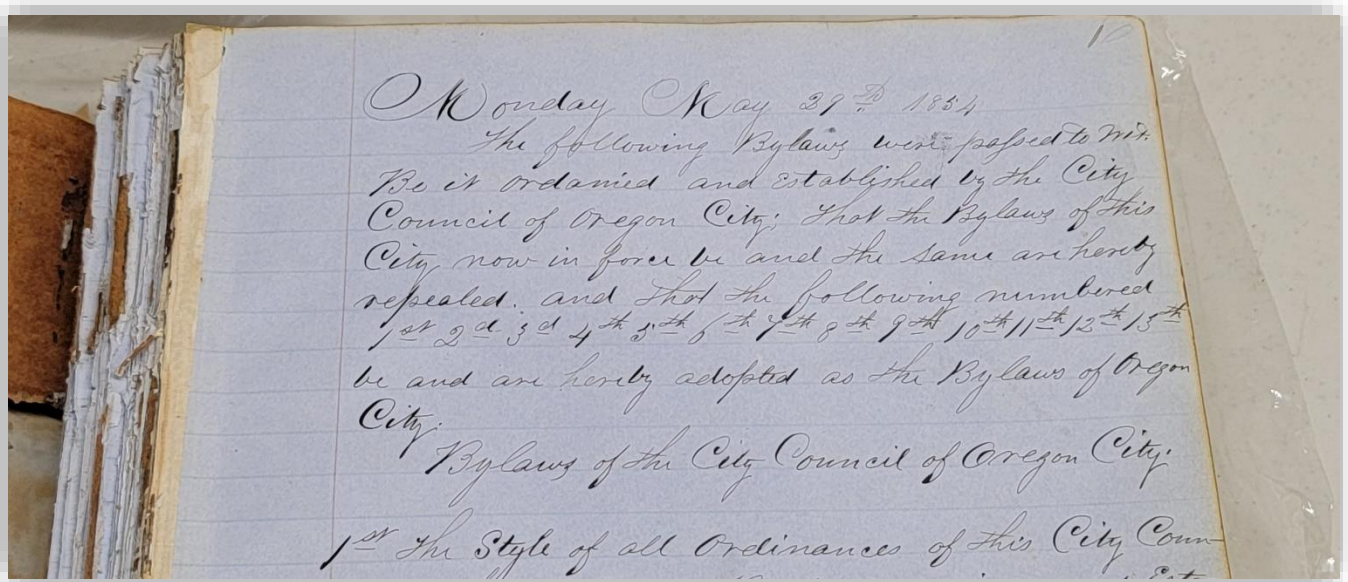 Monday May 29th 1854
The following Bylaws were passed to wit.
Be it ordanied and Established by the City
Council of Oregon City; that the Bylaws of this
City now in force be and the same are hereby
repealed. and that the following numbered
1st 2d 3d 4th 5th 6th 7th 8th 9th 10th 11th 12th 13th
be and are hereby adopted as the Bylaws of Oregon
City.
Bylaws of the City Council of Oregon City.
1st The Style of all Ordinances of this City Coun-